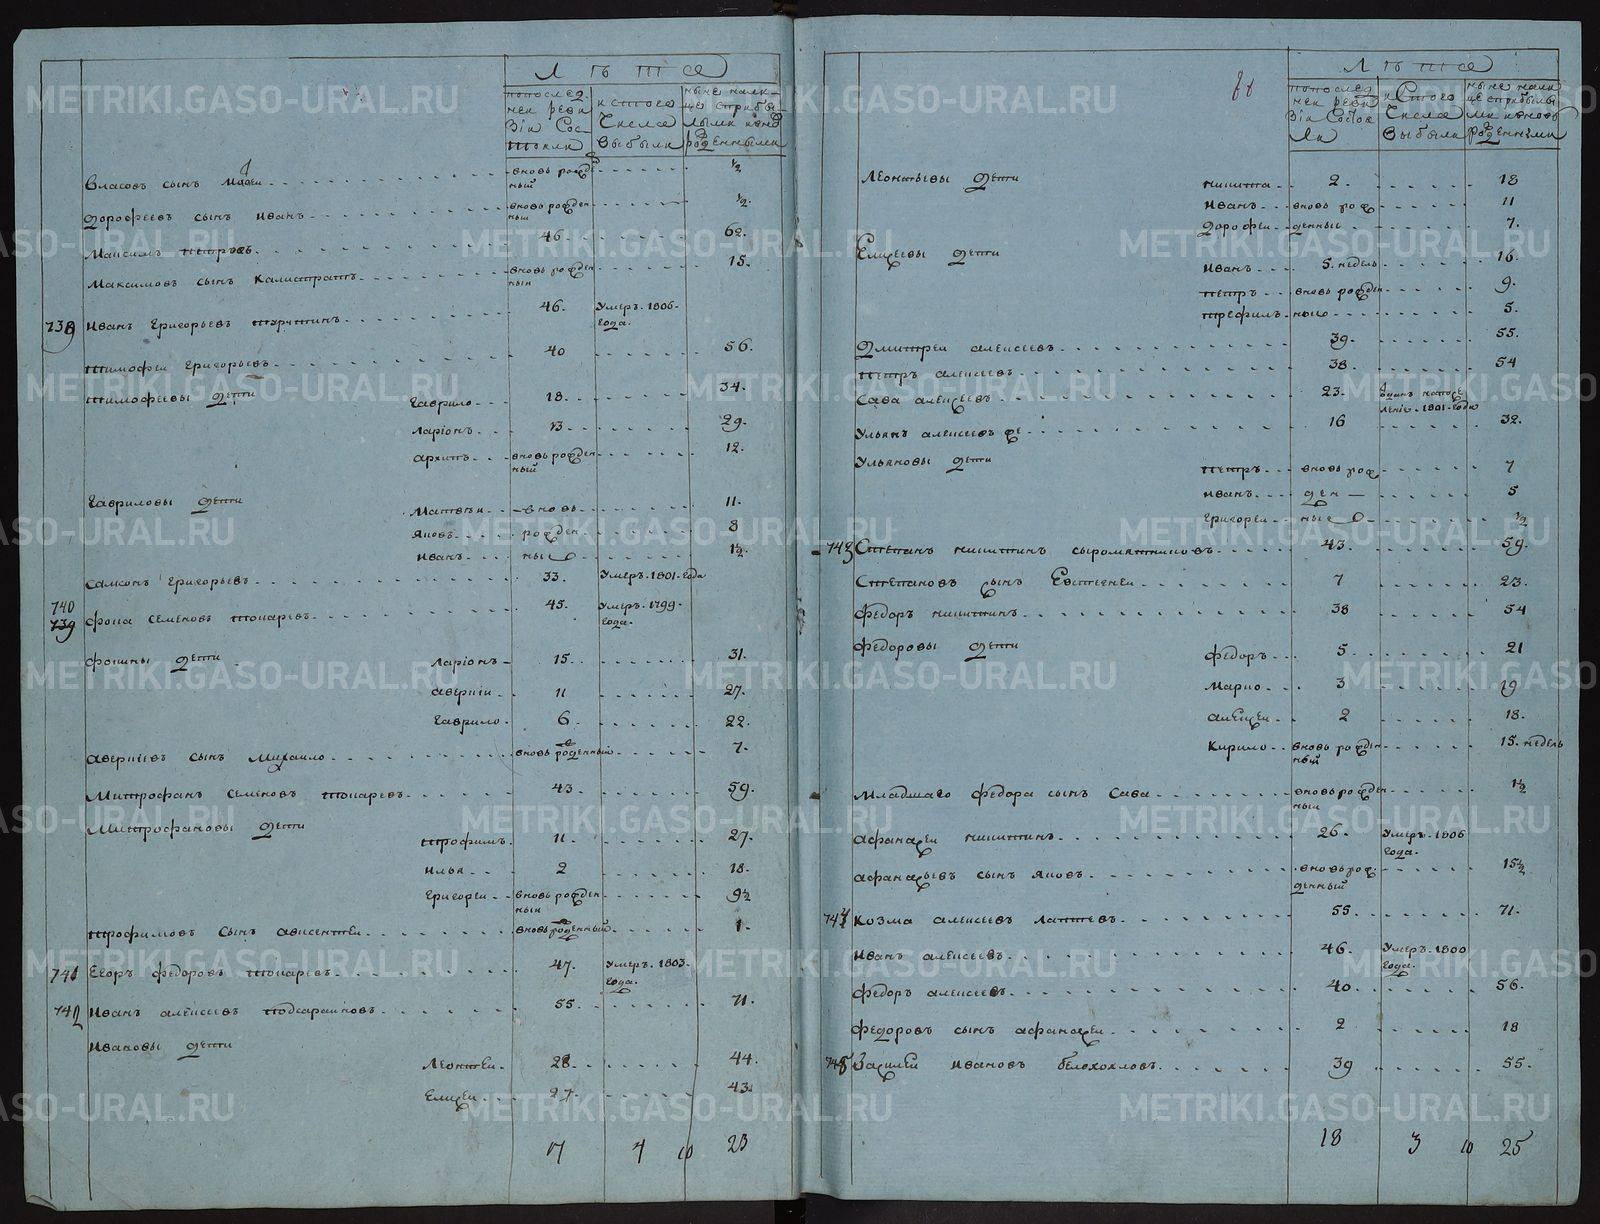 Лѣта
попослед
ней реви
зіи Сос
тояли
и стого
Числа
выбыли
ныне нали-
це сприбы-
лыми ивно
рожденными
Власовъ сынъ вновь рожде ½
ный
Дорофеевъ сынъ иванъ вновь рожден ½.
ный
Максимъ петровъ 46. 62.
Максимовъ сынъ Калистратъ вновь рожден 15.
ныи
739 иванъ григорьевъ 46. Умеръ. 1806.
года.
тимофеи григорьевъ 40 56.
тимофеевы дети гаврило 18. 34.
ларіонъ 13 29.
архипъ вновь рожден 12.
ный
Гавриловы дети Матвеи вновь 11.
яковъ рожден 8
иванъ ные 1½.
самсонъ григорьевъ 33. Умеръ. 1801. года
740
739 фока семеновъ токаревъ 45. Умеръ. 1799.
года.
фокины дети ларіонъ 15. 31.
аверкіи 11 27.
гаврило. 6. 22.
аверкіевъ сынъ Михаило вновь роденный 7.
Митрофанъ семеновъ токаревъ 43. 59.
Митрофановы дети трофимъ. 11. 27.
илья 2 18.
григореи вновь рожден 9½
ныи
трофимовъ сынъ авксентеи вновь роденный 1.
741 Егоръ федоровъ токаревъ 47. Умеръ. 1803.
года.
742 иванъ алексеевъ 55. 71.
ивановы дети
Леонтеи. 28. 44.
елисеи 27. 43.
17 4 10 23
Лѣта
попослед
ней реви
зіи Состоя
ли
и Стого
Числа
выбыли
ныне нали
це сприбылы
ми ивновь
рожденными
Леонтьевы дети никита 2. 18
иванъ вновь рож 11
дорофеи денные 7.
Елисеевы дети иванъ 5. недель 16.
петръ вновь рожден 9.
трефилъ ные 5.
Дмитреи алексеевъ 39. 55.
петръ алексеевъ 38. 54
Сава алексеевъ 23. отданъ напосе
леніе. 1801. года
Ульянъ алексеевъ же 16 32.
Ульяновы дети петръ вновь рож 7
иванъ ден 5
григореи ные ½
743 Степанъ никитинъ сыромятниковъ 43. 59.
Степановъ сынъ Евстегнеи 7 23.
федоръ никитинъ 38 54
федоровы дети федоръ 5. 21
Марко 3 19
алексеи 2 18.
Кирило вновь рожден 15. недель
ный
Младшаго федора сынъ Сава вновь рожден 1½
ныи
афанасеи никитинъ 26. Умеръ. 1806
года.
афанасьевъ сынъ яковъ вновь рож 15½
денный
744 козма алексеевъ лаптевъ 55. 71.
иванъ алексеевъ 46. Умеръ. 1800
года.
федоръ алексеевъ 40. 56.
федоровъ сынъ афанасеи 2 18
745 Василеи ивановъ белохохловъ 39 55.
18 3 10 25
METRIKI.GASO-URAL.RU